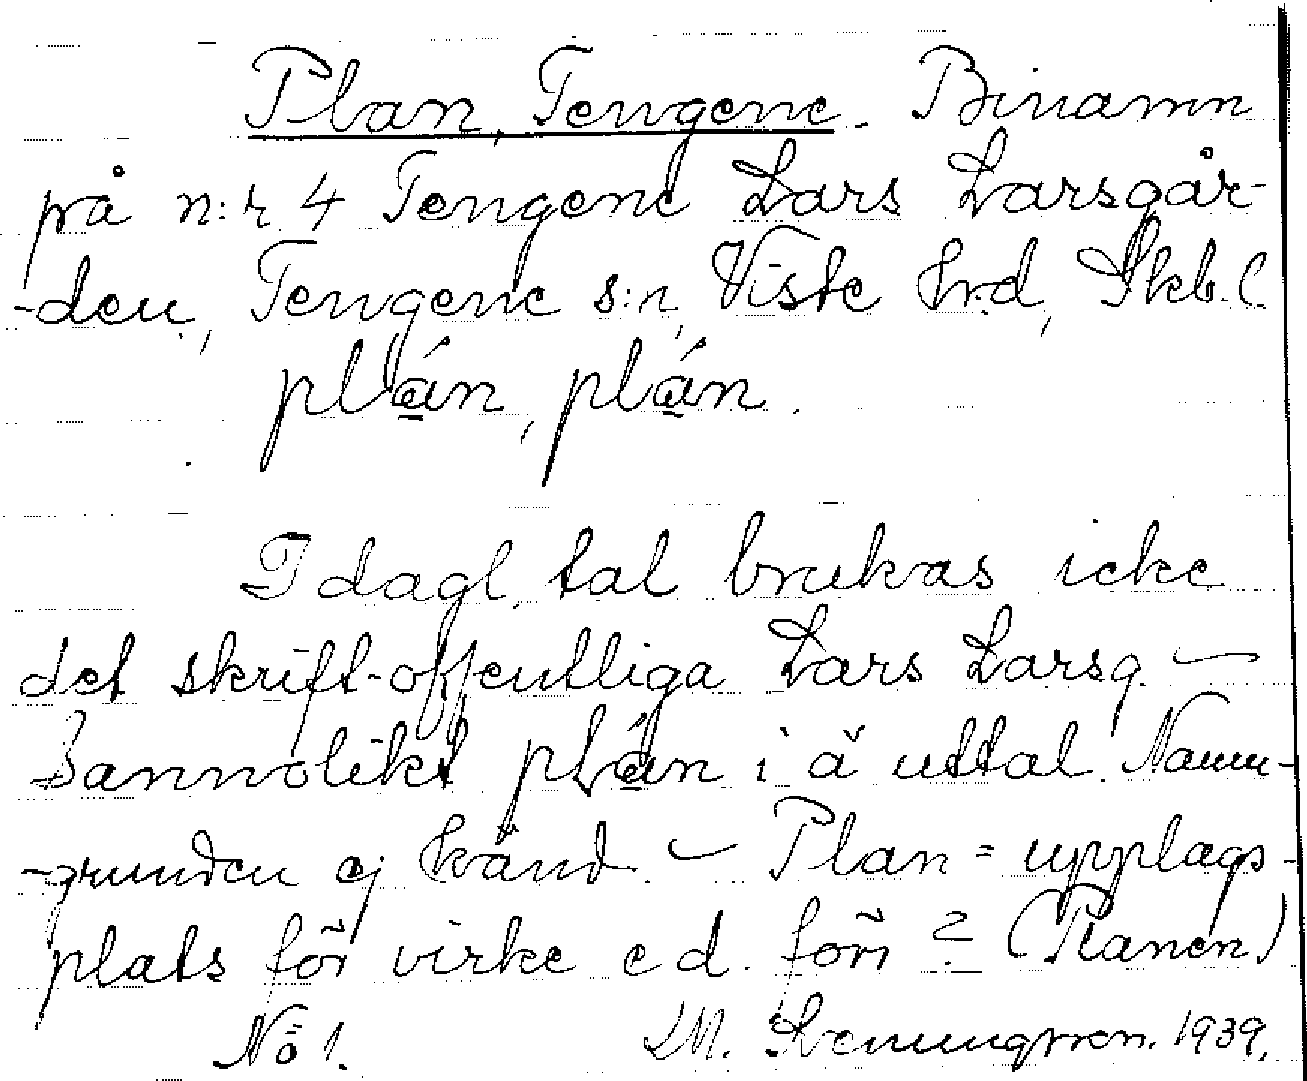 Plan, Tengene. Binamn
på n:r 4 Tengene Lars Larsgår-
-den, Tengene s:n, Viste hrd, Skb.l.
plán, plán.
I dagl. tal brukas icke
det skrift-offentliga Lars Larsg. —
Sannolikt plán i ä uttal. Namn-
-grunden ej känd. — Plan = upplags-
plats för virke e d. förr ? (Planen)
No 1.
LM. 1939.